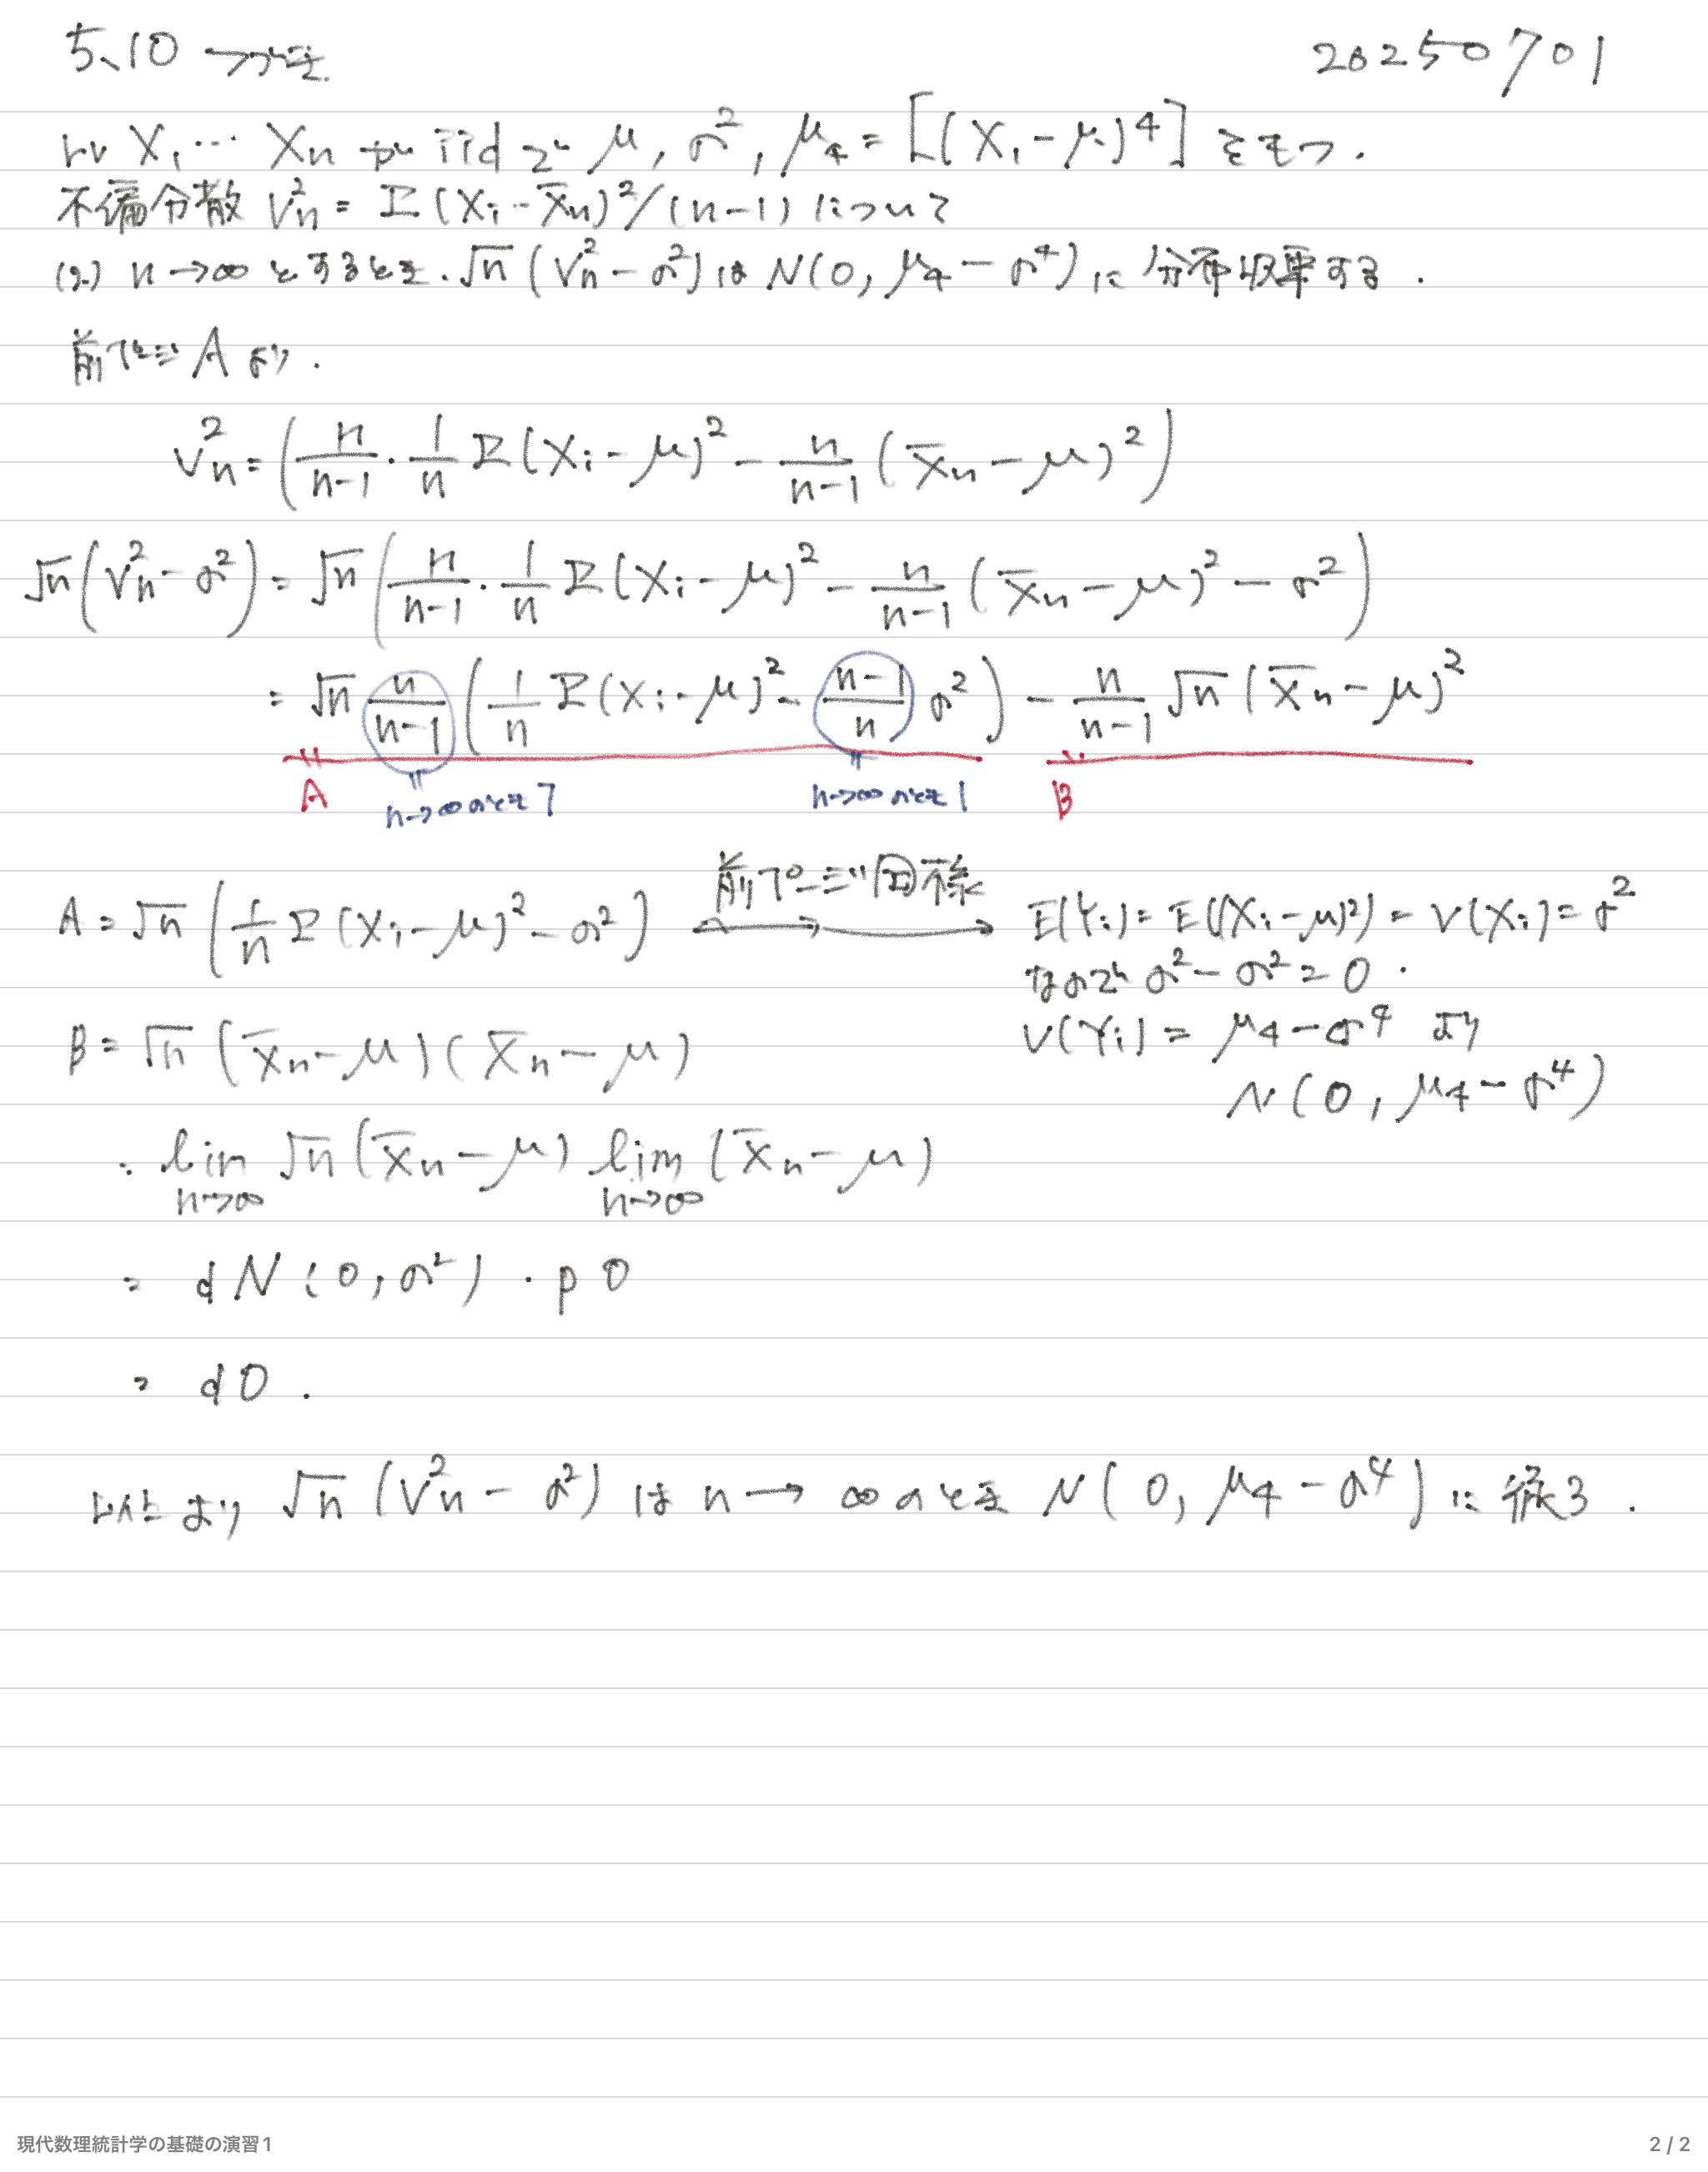 5.10 つづき 20250701
rv X₁… Xn が iid で μ, σ², μ₄ = [(X₁-μ)⁴] をもつ.
不偏分散 Vn² = Σ(Xi-X̄n)²/(n-1) について
(2) n→∞ とするとき. √n (Vn² - σ²) は N(0, μ₄ - σ⁴) に 分布収束する.
前ページ A より.
Vn² = (n/(n-1) · 1/n Σ(Xi-μ)² - n/(n-1) (X̄n-μ)²)
√n(Vn² - σ²) = √n (n/(n-1) · 1/n Σ(Xi-μ)² - n/(n-1) (X̄n-μ)² - σ²)
= √n n/(n-1) (1/n Σ(Xi-μ)² - (n-1)/n σ²) - n/(n-1) √n (X̄n-μ)²
A n→∞のとき1 n→∞のとき1 B
A = √n (1/n Σ(Xi-μ)² - σ²) 前ページ同様 → E(Yi) = E((Xi-μ)²) = V(Xi) = σ²
なので σ² - σ² = 0.
V(Yi) = μ₄ - σ⁴ より
N(0, μ₄ - σ⁴)
B = √n (X̄n-μ)(X̄n-μ)
= lim n→∞ √n (X̄n-μ) lim n→∞ (X̄n-μ)
= d N(0, σ²) · p 0
= d 0.
以上より √n (Vn² - σ²) は n→∞のとき N(0, μ₄ - σ⁴) に従う.
現代数理統計学の基礎の演習1 2 / 2